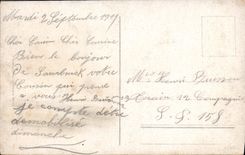 Mardi 2 Septembre 1919
Cher Cousin Chère Cousine
Bien le bonjour
De Sarrebruck votre
Cousin qui pense
a vous Henri
je compte être
démobilisé
dimanche
Mr Henri Buisson
12 Compagnie
S. P. 158